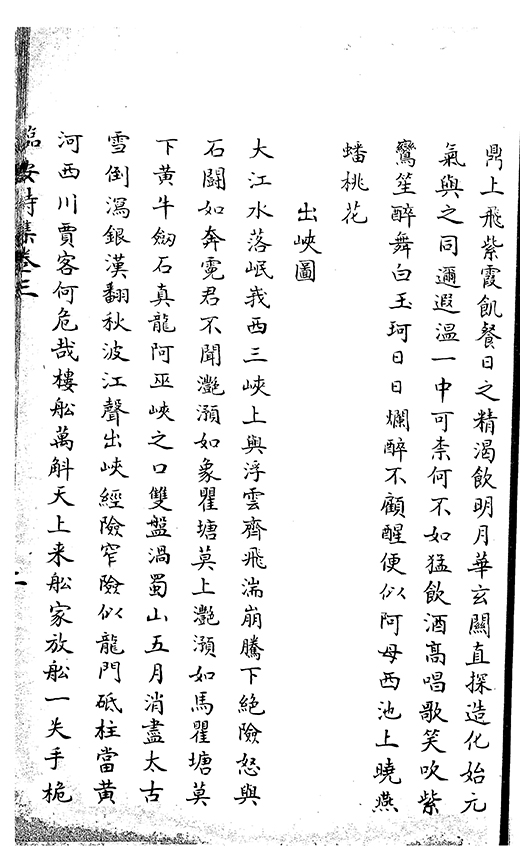 鼎上飛紫霞飢餐日之精渴飲明月華玄關直探造化始元
氣與之同邇遐溫一中可柰何不如猛飲酒高唱歌笑吹紫
鸞笙醉舞白玉珂日日爛醉不顧醒便似阿母西池上曉燕
蟠桃花
出峽圖
大江水落岷峩西三峽上與浮雲齊飛湍崩騰下絶險怒與
石鬪如奔霓君不聞灩澦如象瞿塘莫上灩澦如馬瞿塘莫
下黄牛劒石真龍阿巫峽之口雙盤渦蜀山五月消盡太古
雪倒瀉銀漢翻秋波江聲出峽經險窄險似龍門砥柱當黄
河西川賈客何危哉樓舩萬斛天上来舩家放舩一失手桅
臨安詩集卷三